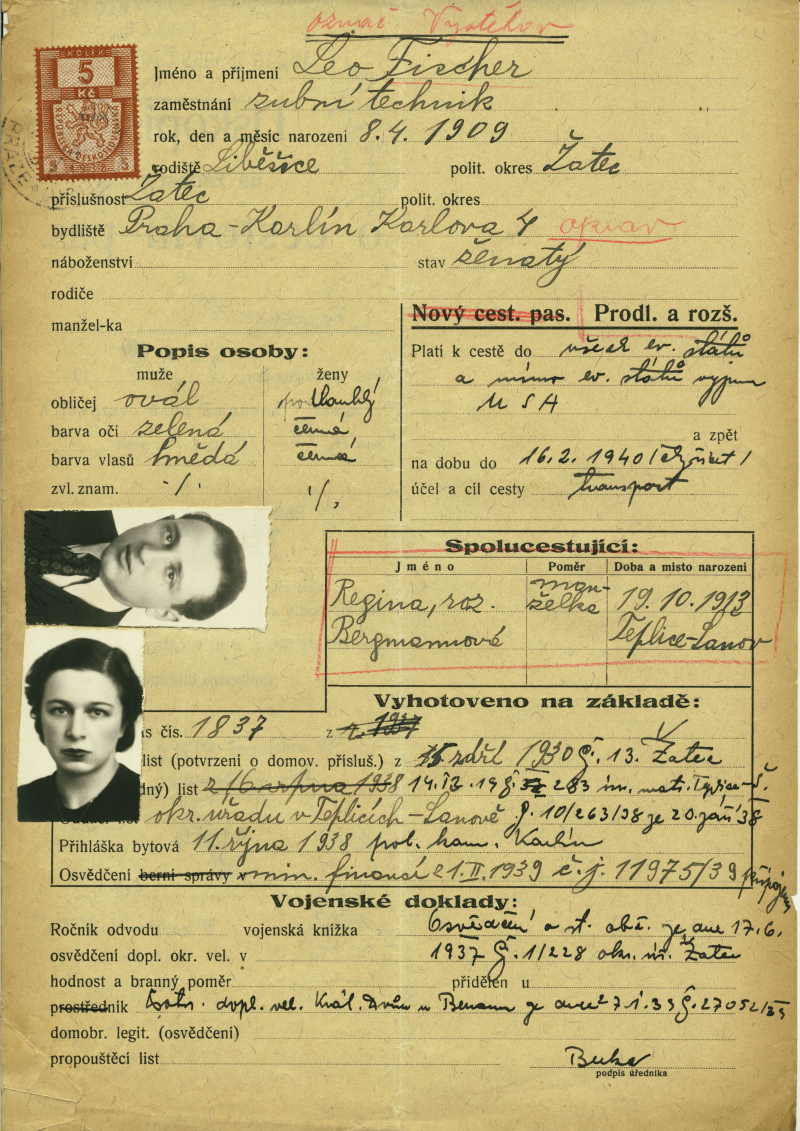 označ Vystěhov
KOLEK
5
Kč
Jméno a příjmení Leo Fischer
zaměstnání zubní technik
rok, den a měsíc narození 8.4. 1909
rodiště Liběšice polit. okres Žatec
příslušnost Žatec polit. okres
bydliště Praha-Karlín Karlova 4
náboženství stav ženatý
rodiče
manžel-ka
Nový cest. pas. Prodl. a rozš.
Platí k cestě do všech ev. států
a mimo ev. států vyjma
USA
a zpět
na dobu do 16.2. 1940
účel a cíl cesty transport
Popis osoby:
muže ženy
obličej ovál
barva oči zelená černá
barva vlasů hnědá černá
zvl. znam. ./. ./.
Spolucestující:
Jméno Poměr Doba a místo narození
Regina, roz. man- 19.10.1913
Bergmannová želka Teplice-Šanov
Vyhotoveno na základě:
as čís. 1837 z
list (potvrzení o domov. přísluš.) z 1930 č. 13. Žatec
dný) list z 16 srpna 1938 283
okr. úřadu v Teplicích-Šanově č. 10/263/38 ze 20. září 38
Přihláška bytová 11. října 1938 pol. kom. Karlín
Osvědčení berní správy min. financí 21.II.1939 č.j. 11975/39
Vojenské doklady:
Ročník odvodu vojenská knížka Osvědčení o st. obč. ze dne 17.6.
osvědčení dopl. okr. vel. v 1937 č. 1/228 okr. úř. Žatec
hodnost a branný poměr přidělen u
prostředník dopl. vel. Král. Dvůr u Berouna ze dne
domobr. legit. (osvědčení)
propouštěcí list
podpis úředníka